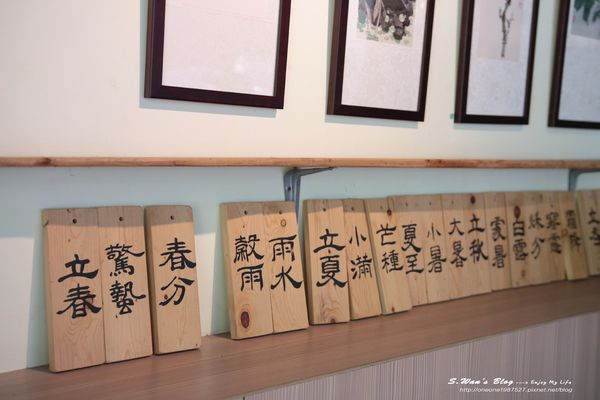 立春
驚蟄
春分
穀雨
雨水
立夏
小滿
芒種
夏至
小暑
大暑
立秋
處暑
白露
秋分
寒露
霜降
立冬
S.Wan's Blog ---- Enjoy My Life
http://oneone1987527.pixnet.net/blog